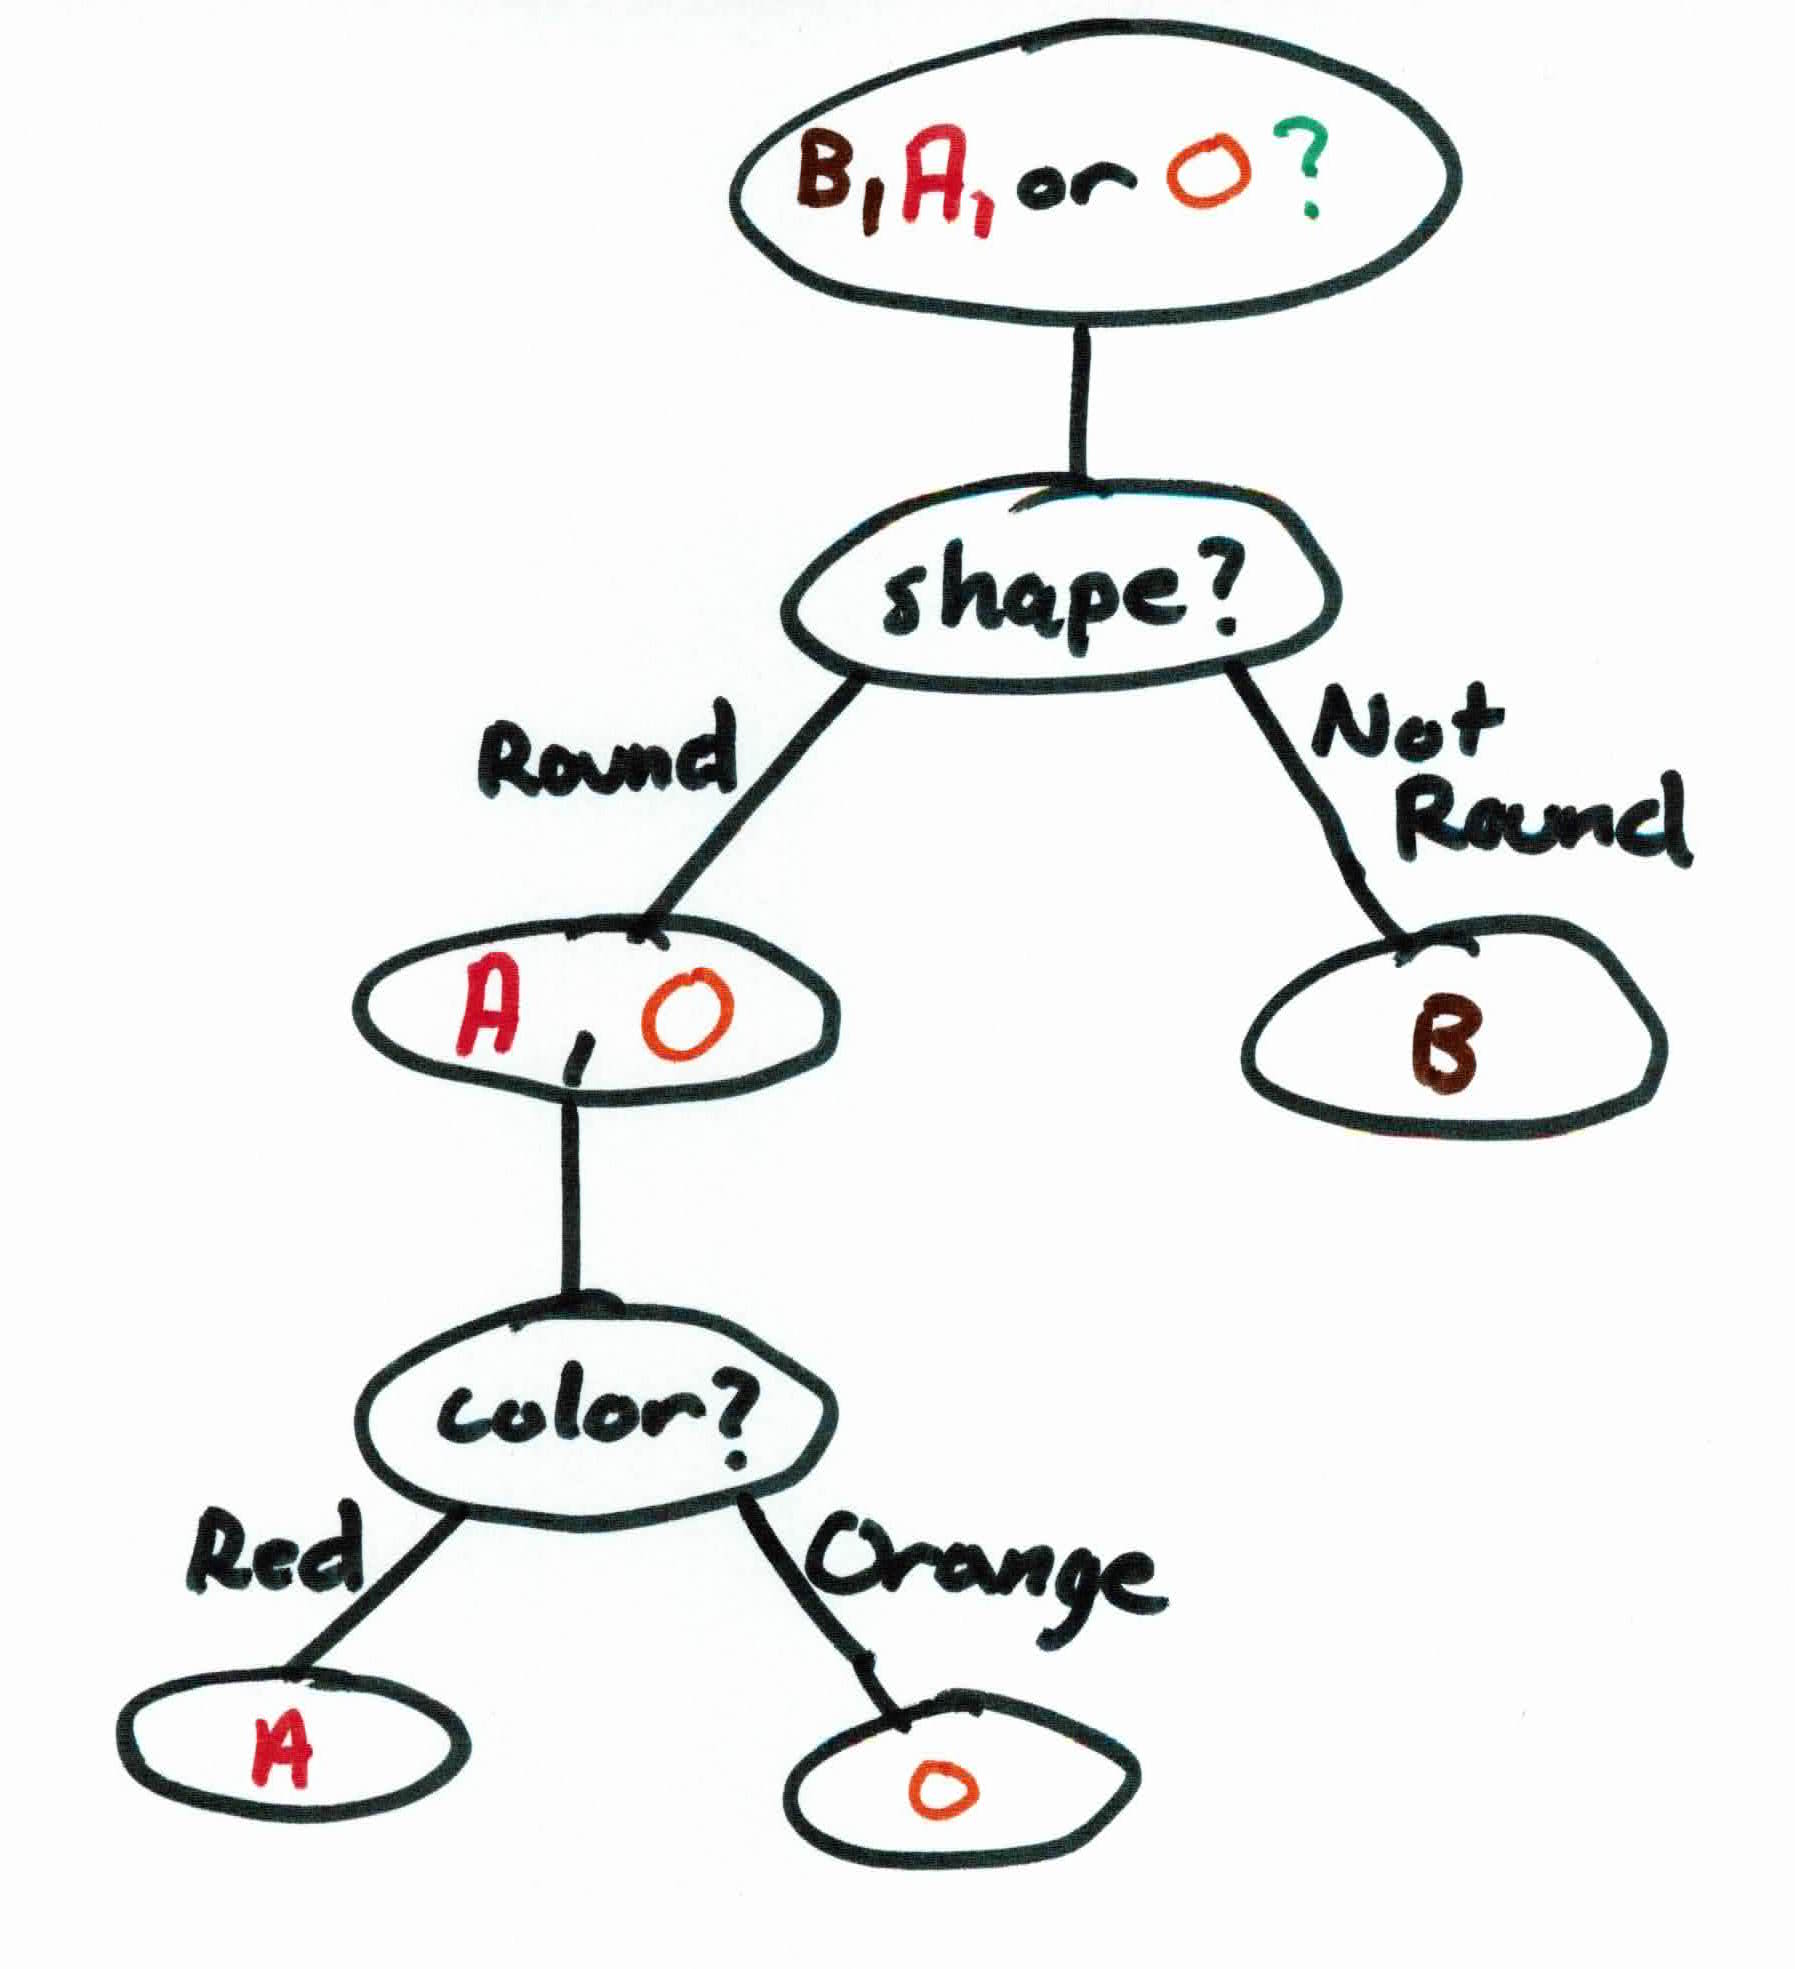 B, A, or O?
shape?
Round
Not
Round
A, O
B
color?
Red
Orange
A
O